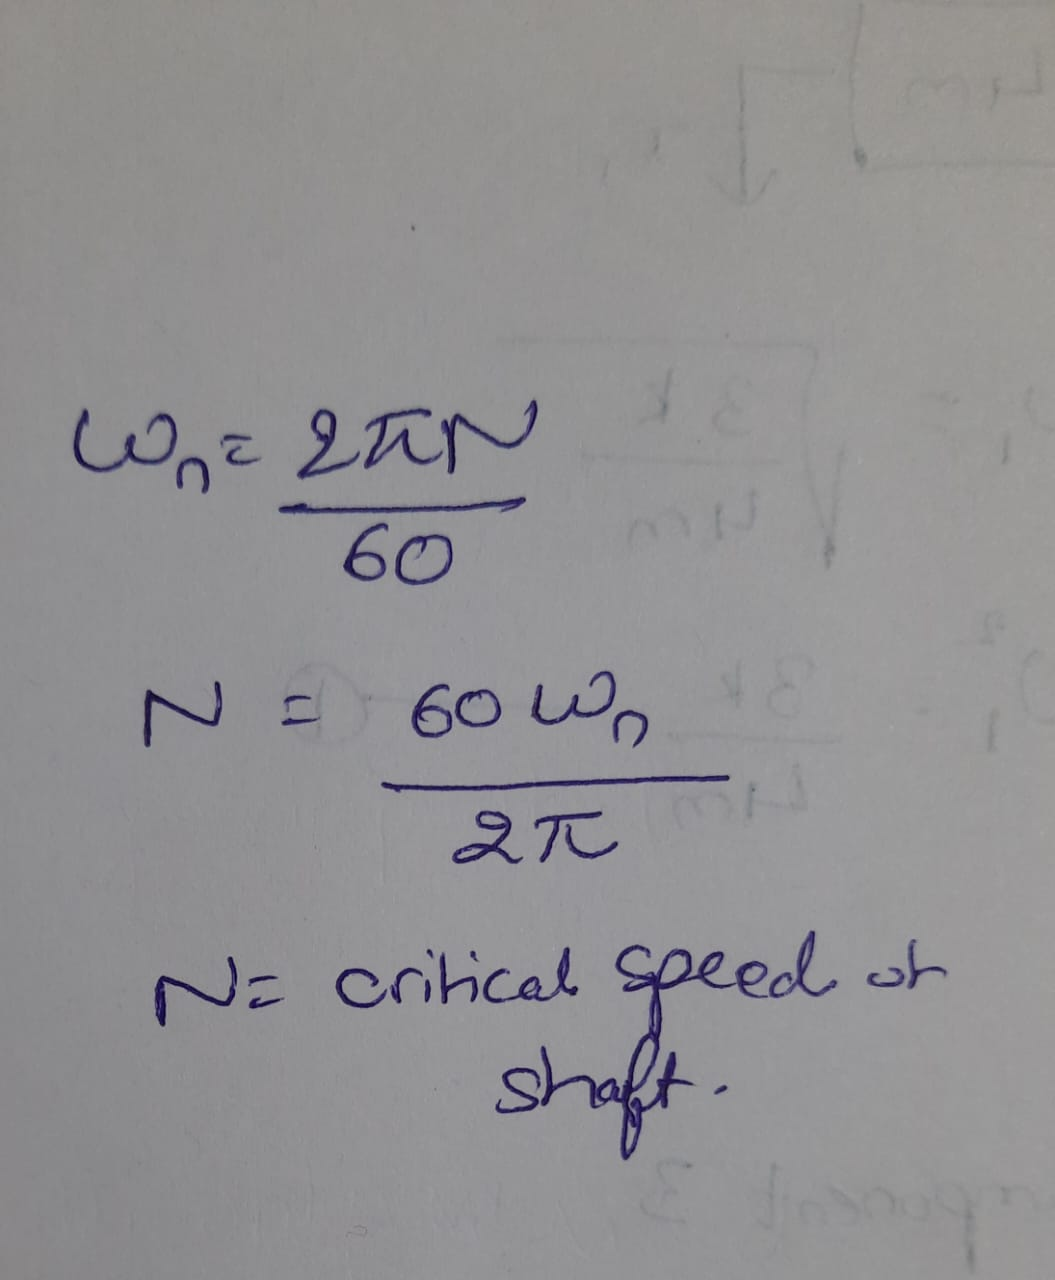 ωn = 2πN
60
N = 60 ωn
2π
N = critical speed of
shaft.